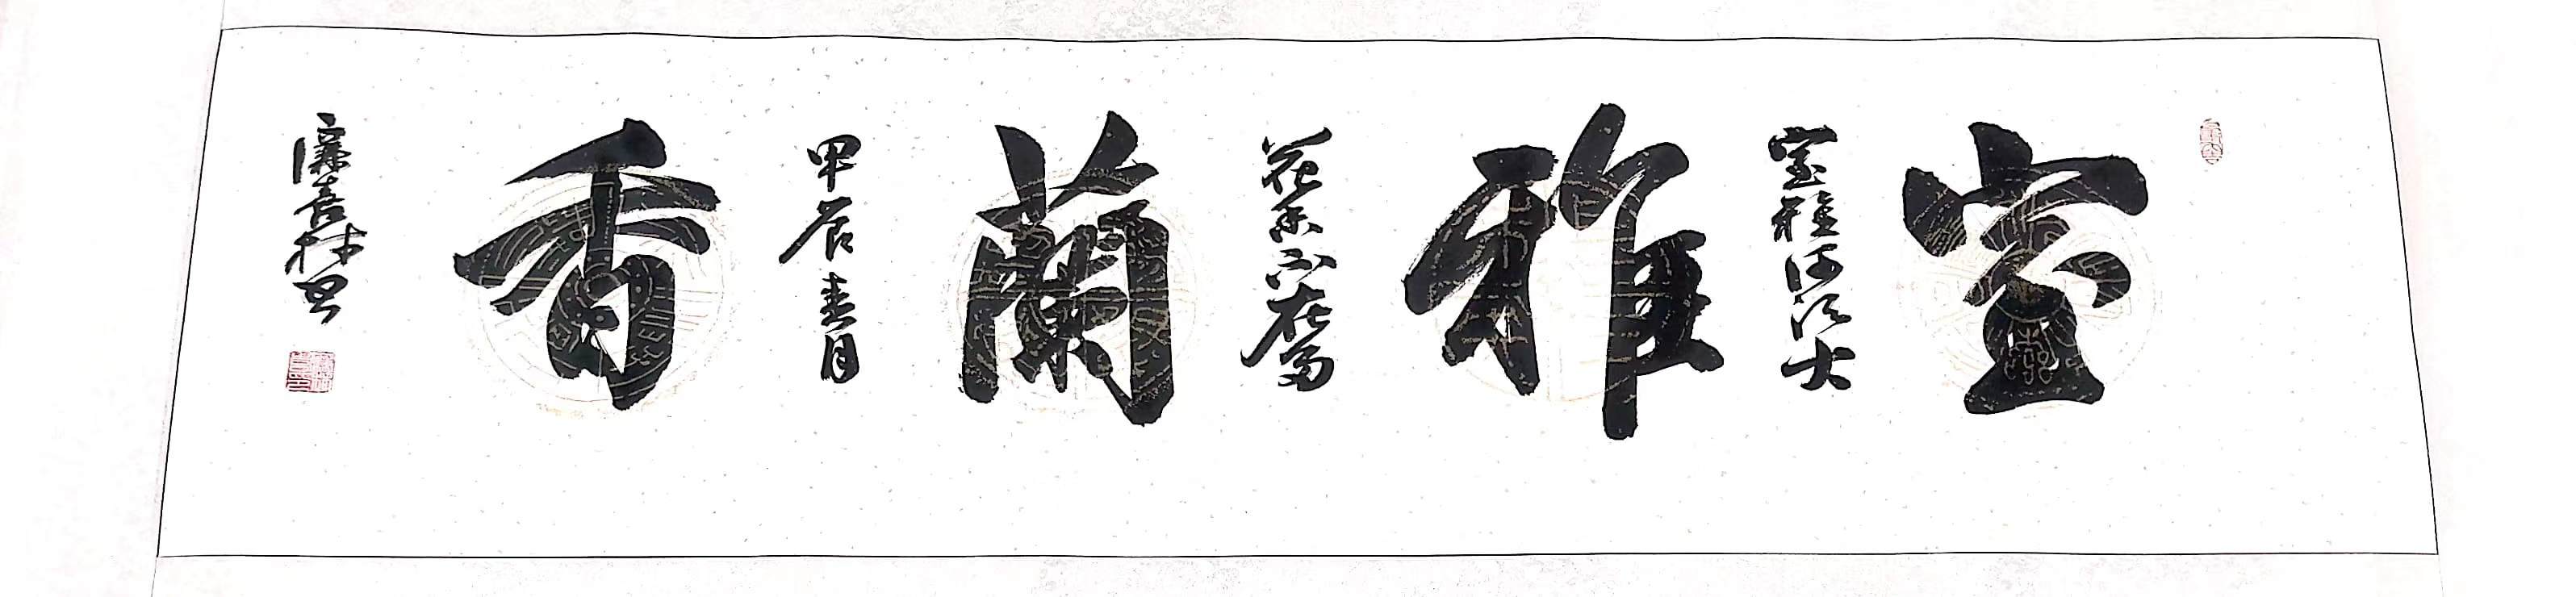 室
室雅何須大
雅
花香不在多
蘭
甲辰春月
香